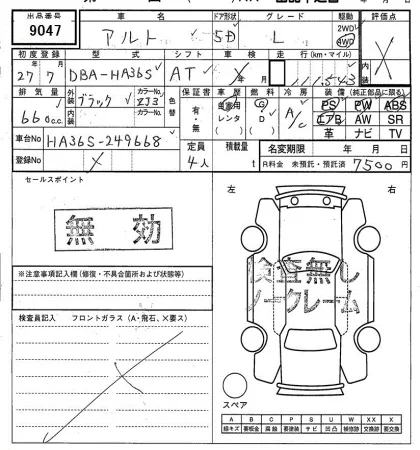 出品番号 車名 ドア形状 グレード 駆動 評価点
9047 アルト 5D L 2WD 4WD X
初度登録 型式 シフト 車検 走行(km・マイル)
27年 7月 DBA-HA36S AT X 年 月 111,543
排気量 外装 ブラック カラーNo. ZJ3 色替 保証書 車歴 燃料 冷房 装備(純正部品に限る)
660c.c. 内装 カラーNo. 有・無 自家用 レンタ G D A/C PS PW ABS
エアB AW SR
革 ナビ TV
車台No HA36S-249668 定員 積載量 名変期限 年 月 日
登録No X 4人 t R料金 未預託・預託済 7500円
セールスポイント
無効
※注意事項記入欄(修復・不具合箇所および状態等)
検査員記入 フロントガラス(A・飛石、X要ス)
左 右
検査無し
ノークレーム
スペア
A B C P S U W XX X
線キズ 要板金 腐蝕 要塗装 サビ 凹凸 補修跡 交換跡 要交換